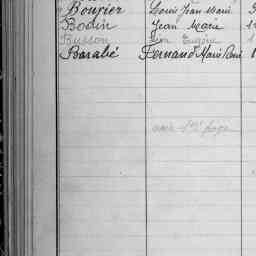 Bouyier Louis Jean Marie
Bodin Jean Marie
Busson Eugène
Barabé Fernand Marie René
voir 1ère page